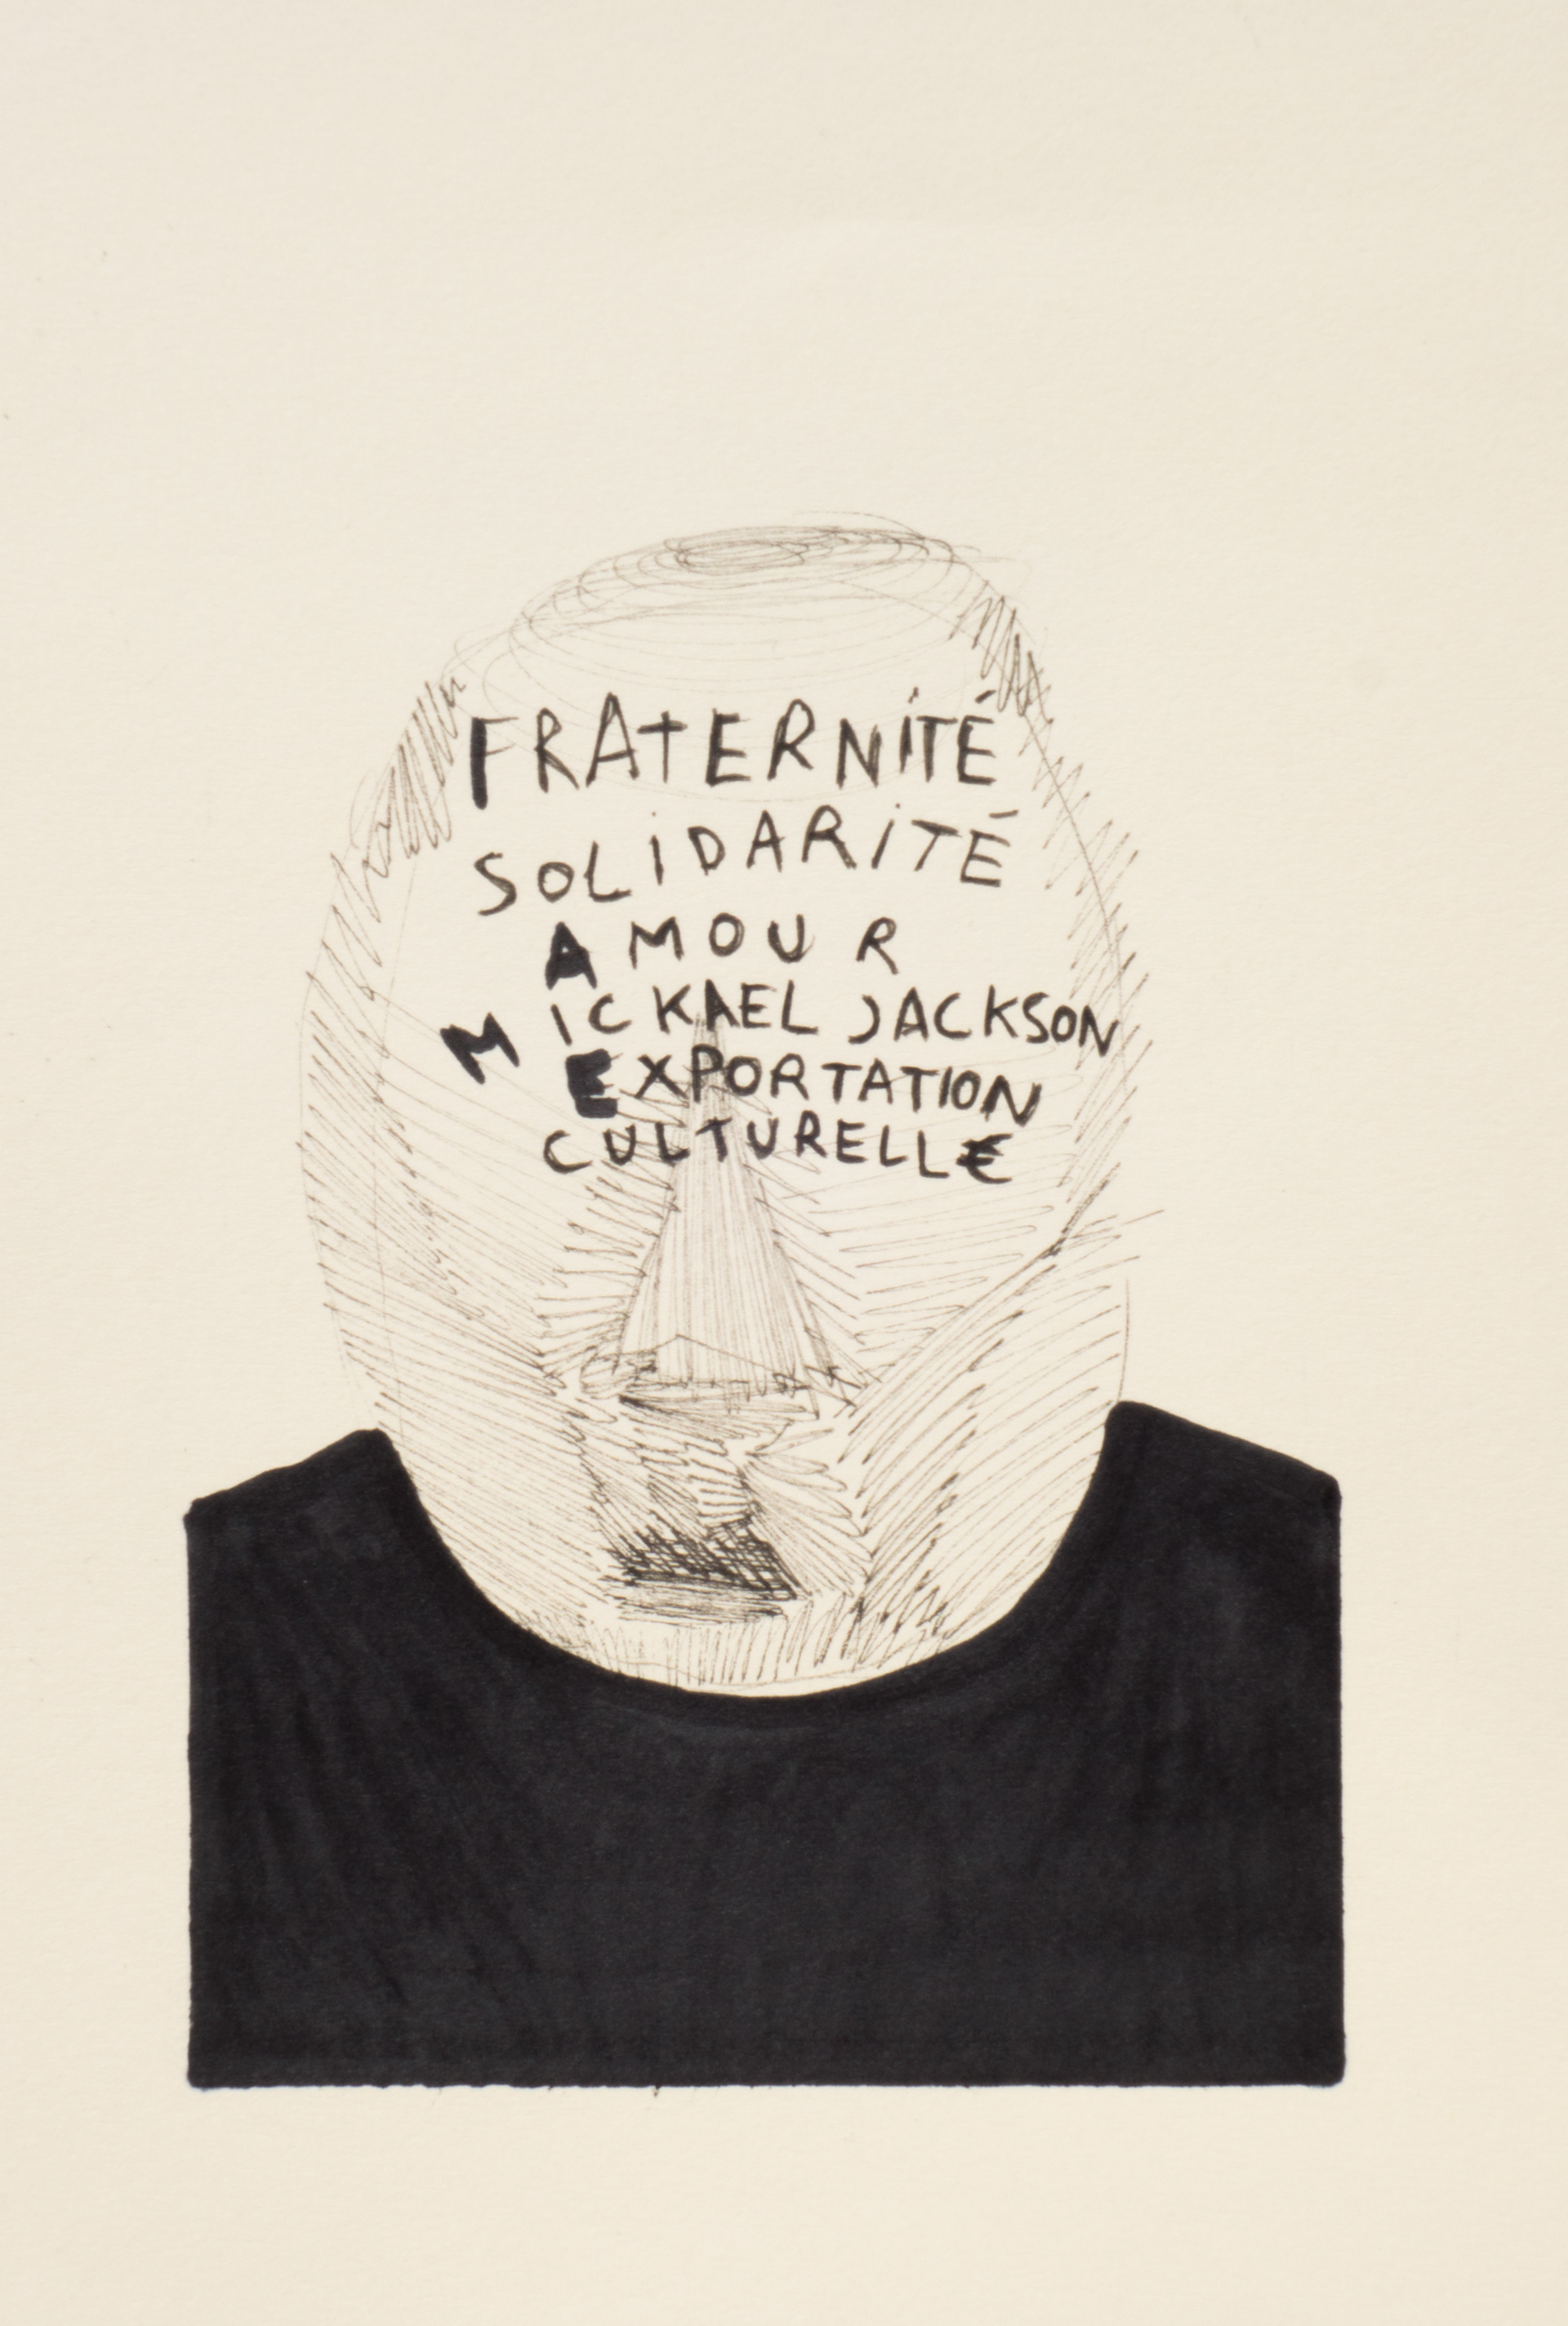 FRATERNITÉ
SOLIDARITÉ
AMOUR
MICKAEL JACKSON
EXPORTATION
CULTURELL€